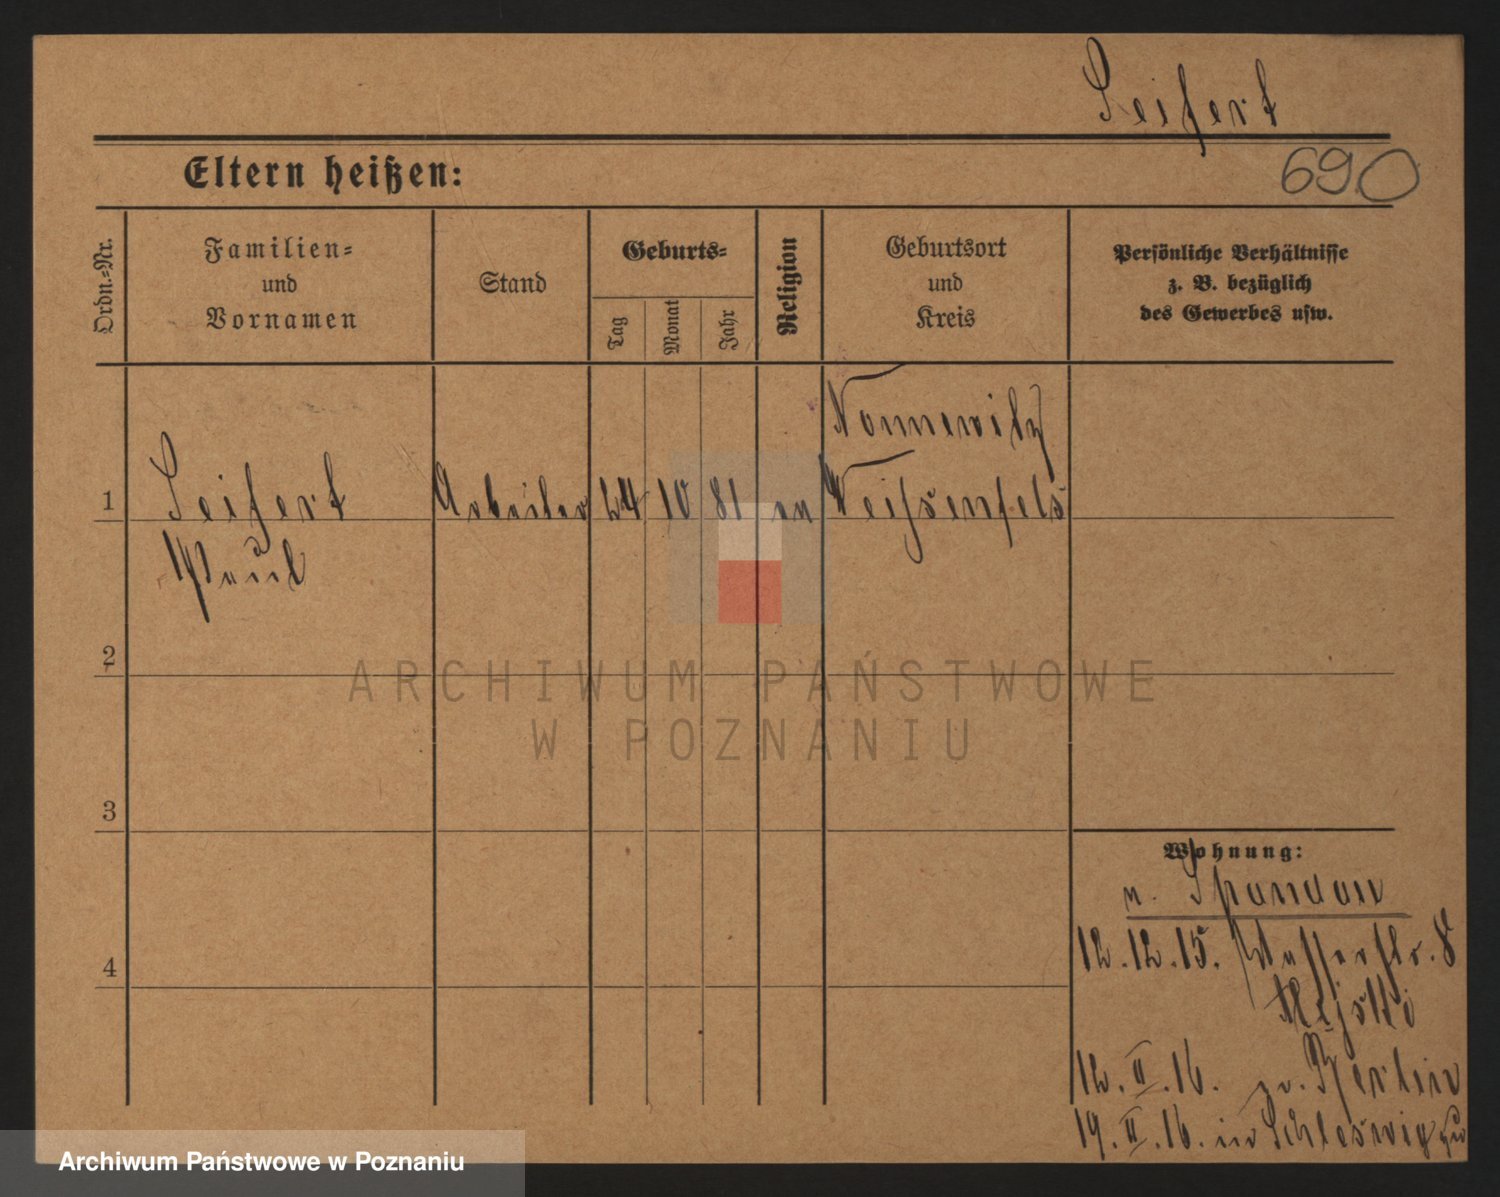 Seifert
690
Eltern heißen:
Ordn.-Nr.
Familien-
und
Vornamen
Stand
Geburts-
Tag
Monat
Jahr
Religion
Geburtsort
und
Kreis
Persönliche Verhältnisse
z. B. bezüglich
des Gewerbes usw.
Nonnewitz
1 Seifert Arbeiter 24 10 81 Weißenfels
Paul
2
3
4
Wohnung:
n. Spandau
12.12.15. 8
12.II.16. Berlin
19.II.16. in Schleswig zu
ARCHIWUM PAŃSTWOWE
W POZNANIU
Archiwum Państwowe w Poznaniu